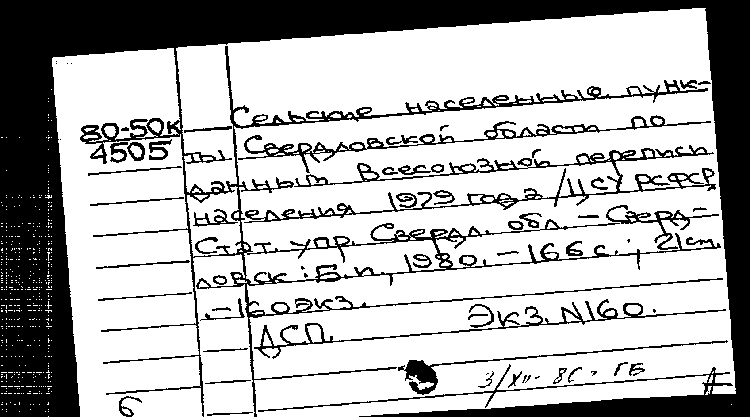 80-50к
4505
Сельские населенные пунк-
ты Свердловской области по
данным Всесоюзной переписи
населения 1979 года / ЦСУ РСФСР,
Стат. упр. Свердл. обл. – Сверд-
ловск : Б.и., 1980. – 166 с. ; 21 см.
. – 160 экз.
ДСП. Экз. N160.
6